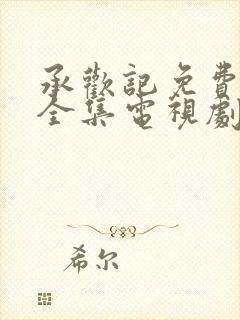 承歡記免費
全集電視劇
希尔